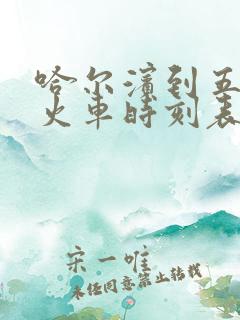 哈尔滨到五
火车时刻表
宋一唯
未经同意禁止转载